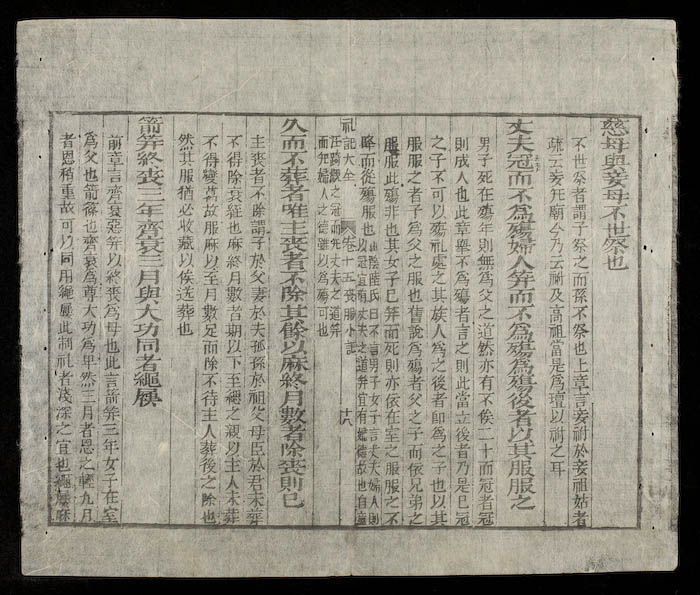 慈母與妾母不世祭也
不世祭者謂子祭之而孫不祭也上章言妾祔於妾祖姑者
疏云妾无廟今乃云祔及高祖當是爲壇以祔之耳
丈夫冠而不爲殤婦人笄而不爲殤爲殤後者以其服服之
男子死在殤年則無爲父之道然亦有不俟二十而冠者冠
則成人也此章舉不爲殤者言之則此當立後者乃是已冠
之子不可以殤礼處之其族人爲之後者即爲之子也以其
服服之者子爲父之服也舊說爲殤者父之子而依兄弟之
服服此殤非也其女子已笄而死則亦依在室之服服之不
略而從殤服也 山陰陸氏曰不言男子女子言丈夫婦人則
以冠宜有丈夫之道笄宜有婦德故也自童
礼記大全 卷十五 喪服小記 十八
汪踦無冠而死丈夫之道笄
而死婦人之德雖以爲殤可也
久而不葬者唯主喪者不除其餘以麻終月數者除喪則已
主喪者不除謂子於父妻於夫孤孫於祖父母臣於君未葬
不得除衰絰也麻終月數者期以下至緦之親以主人未葬
不得變葛故服麻以至月數足而除不待主人葬後之除也
然其服猶必收藏以俟送葬也
箭笄終喪三年齊衰三月與大功同者繩屨
前章言齊衰惡笄以終喪爲母也此言箭笄三年女子在室
爲父也箭篠也齊衰爲尊大功爲卑然三月者恩之輕九月
者恩稍重故可以同用繩屨此制礼者淺深之宜也繩屨麻